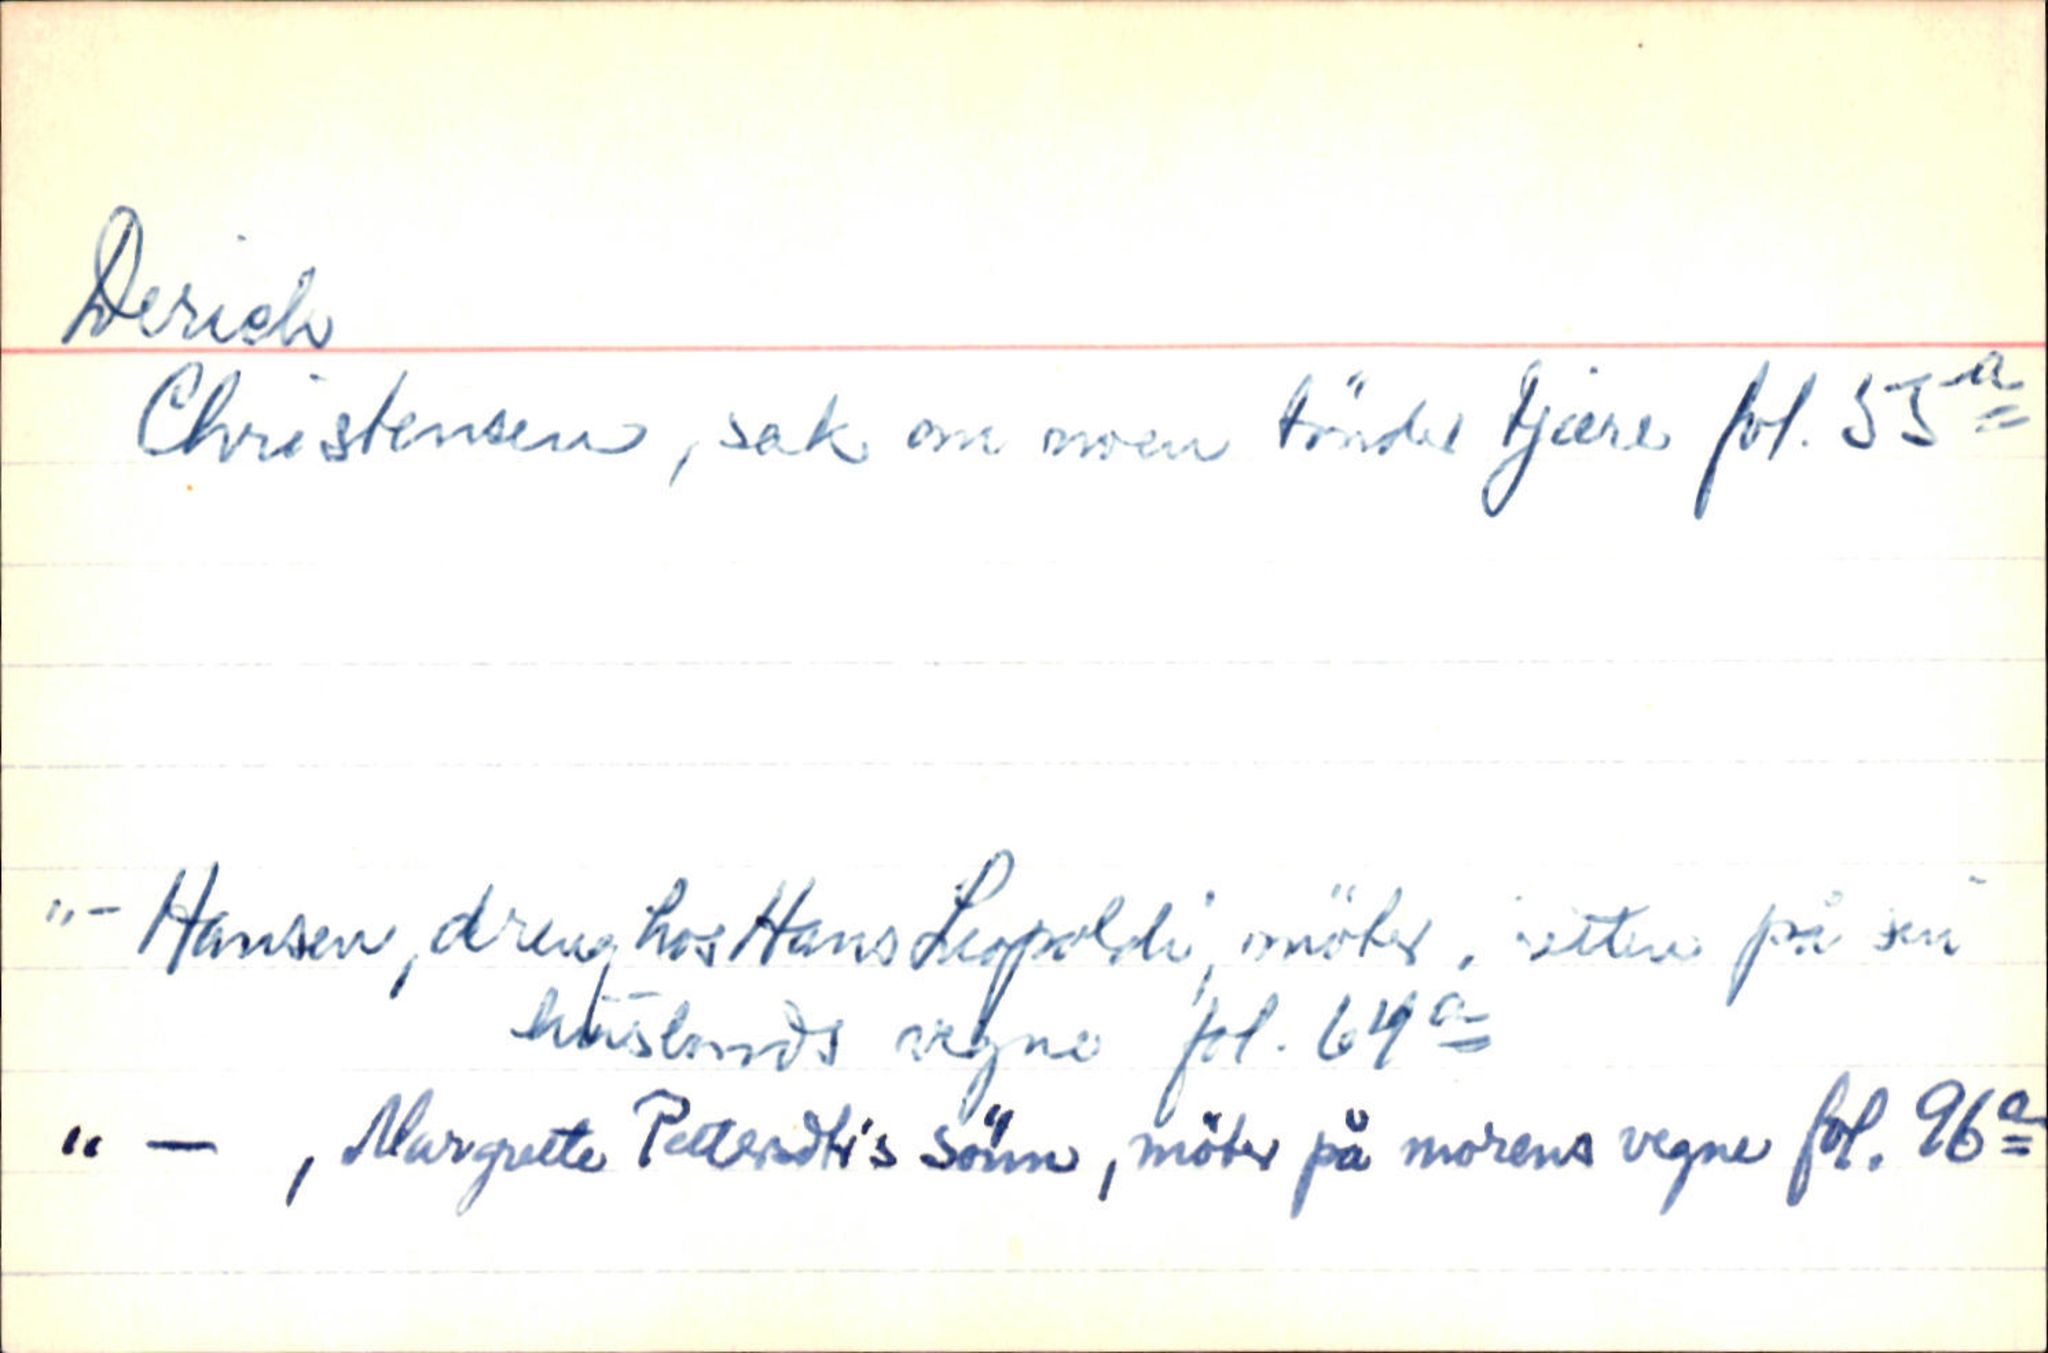 Derich
Christensen, sak om noen tönder tjære fol. 55a
"- Hansen, dreng hos Hans Leopoldi, möter i retten på sin
husbonds vegne fol. 64a
" - , Margrette Pettersdtr's sönn, möter på morens vegne fol. 96a